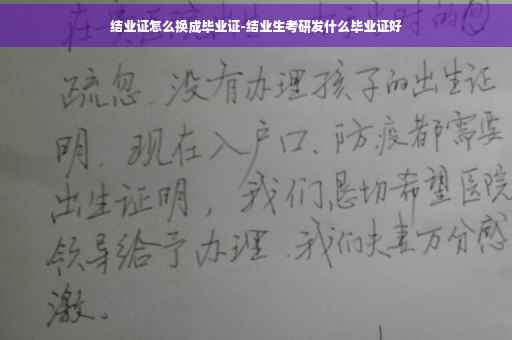 结业证怎么换成毕业证-结业生考研发什么毕业证好
疏忽、没有办理孩子的出生证
明、现在入户口、防疫都需要
出生证明，我们恳切希望医院
领导给予办理、我们夫妻万分感
激。